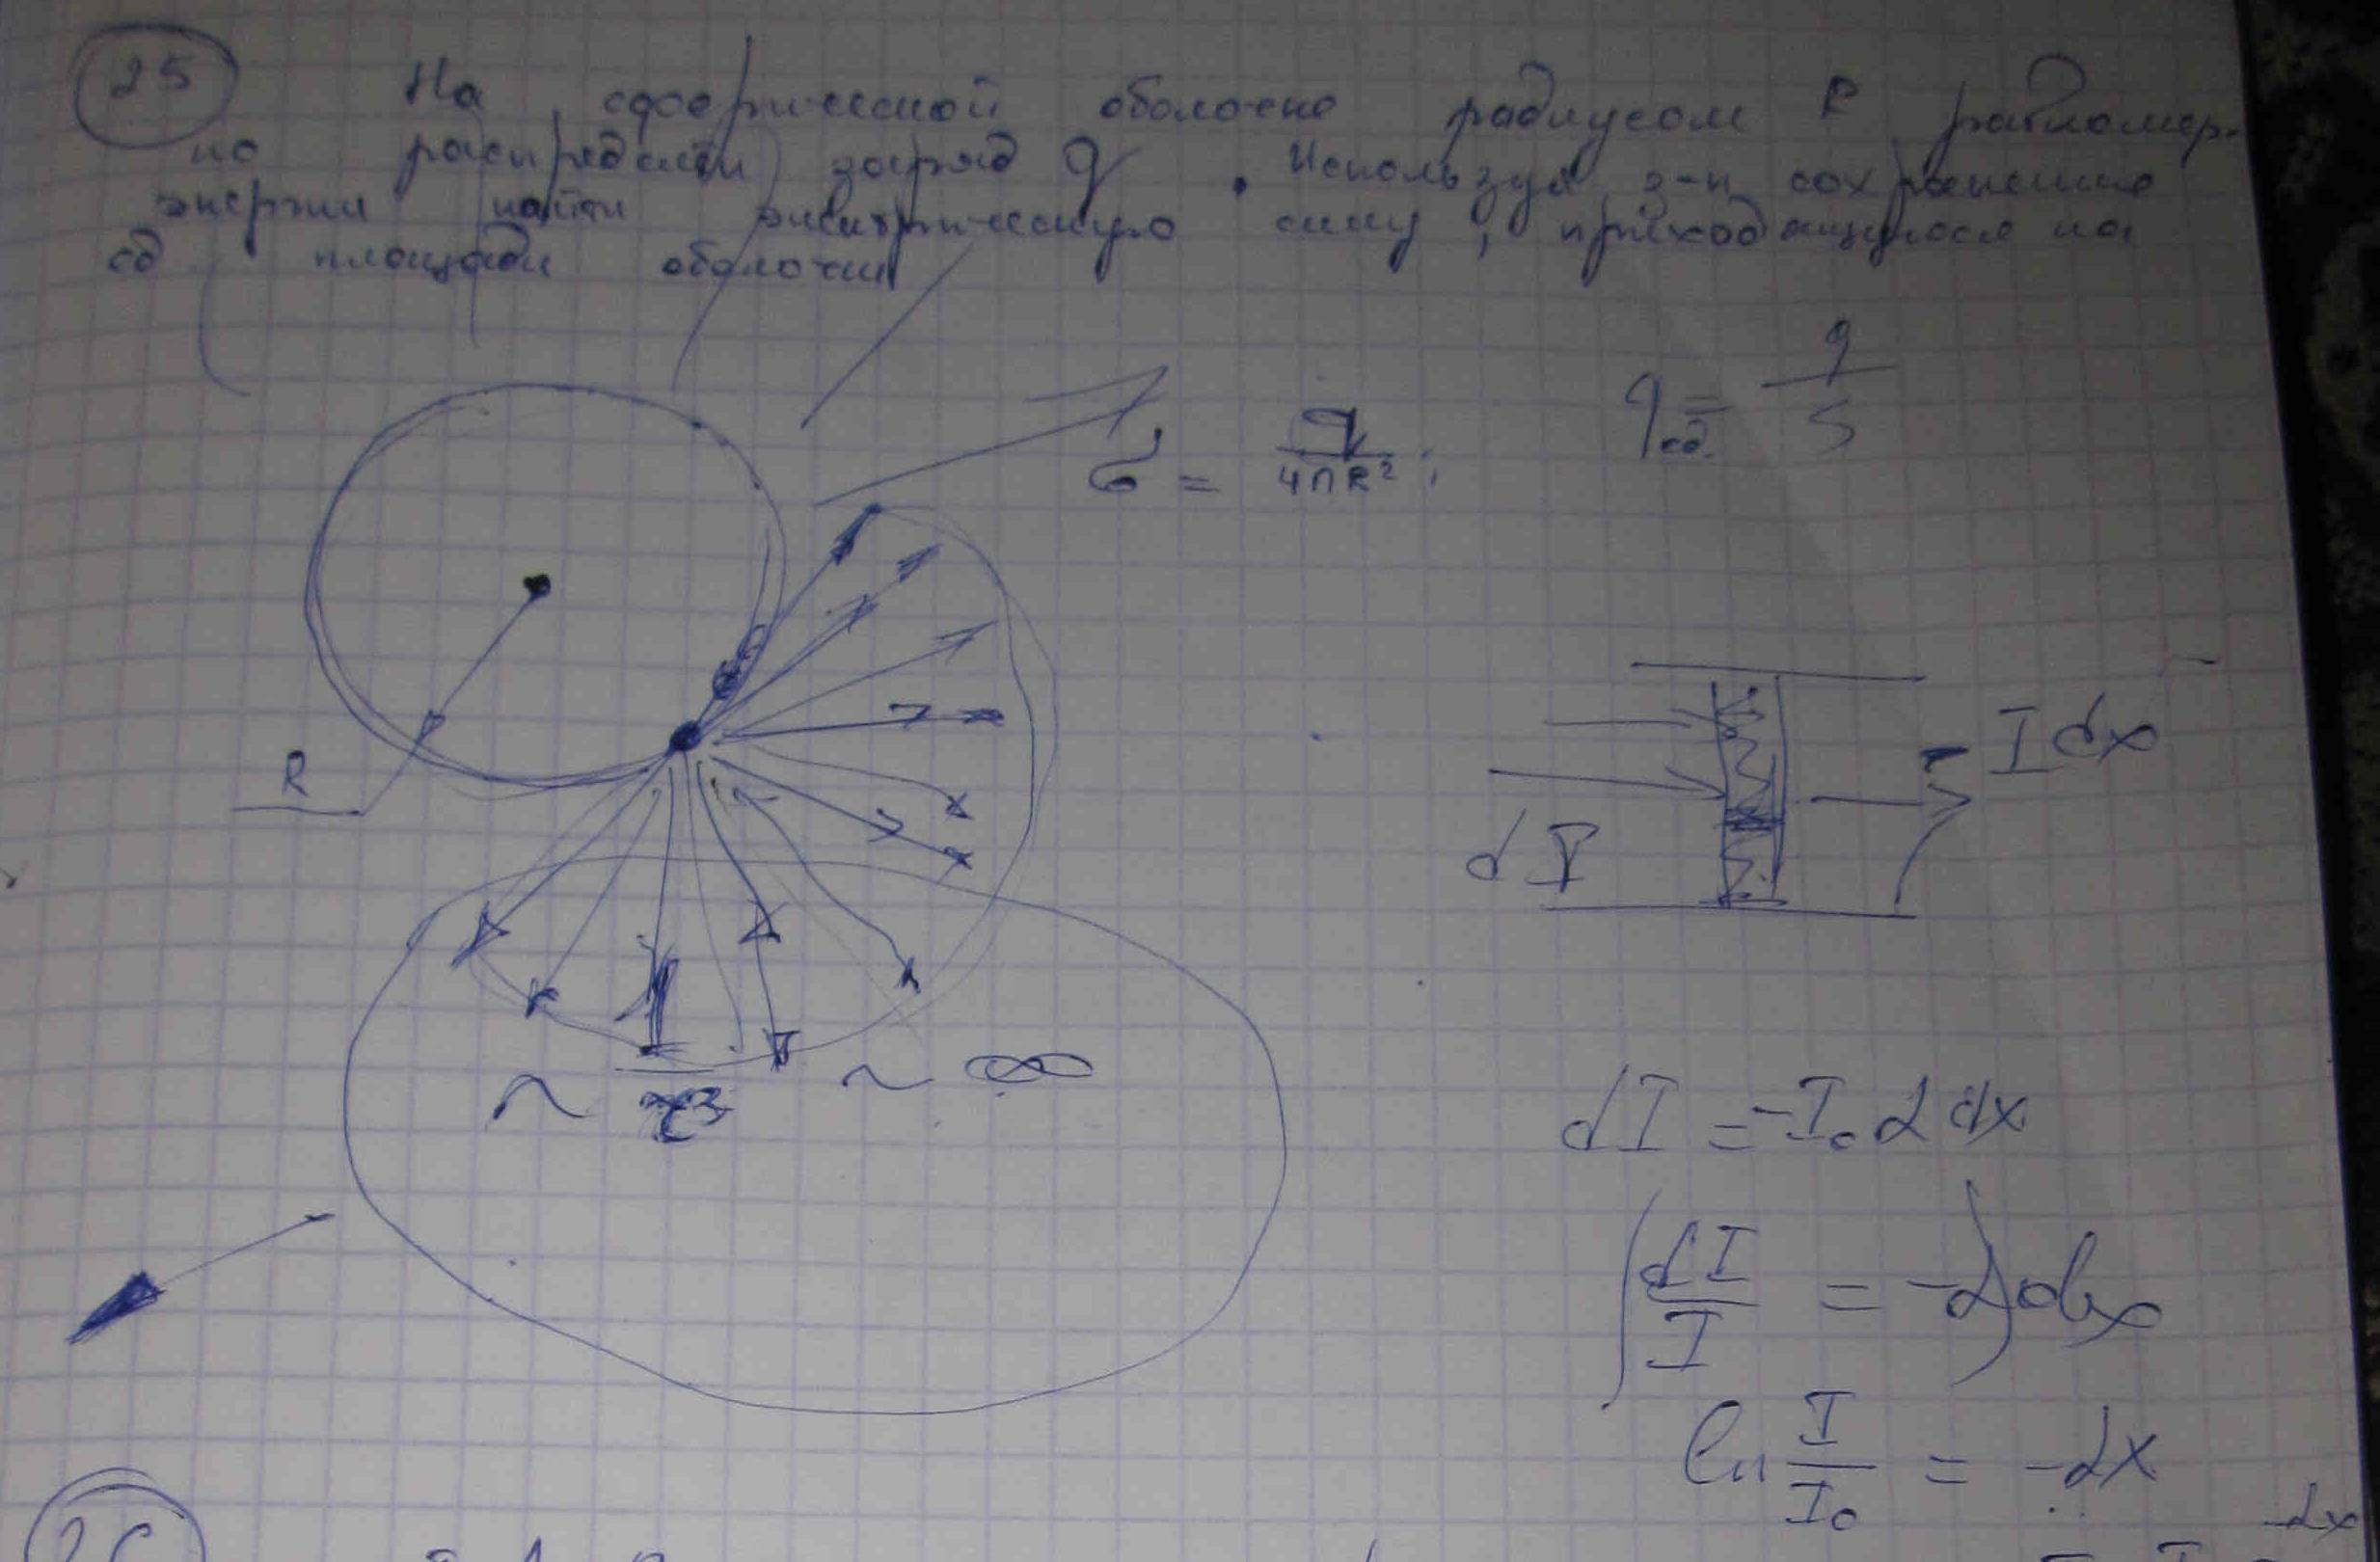 25
На сферической оболочке радиусом R равномер-
но распределён заряд q. Используя з-н сохранения
энергии найти электрическую силу, приходящуюся на
ед площади оболочки
σ = q / 4πR² ;
qед. = q / S
R
I dx
dI
~ 1 / r² ~ ∞
dI = -I₀ α dx
∫ dI / I = -α ∫ dx
ln I / I₀ = -αx
-αx
26